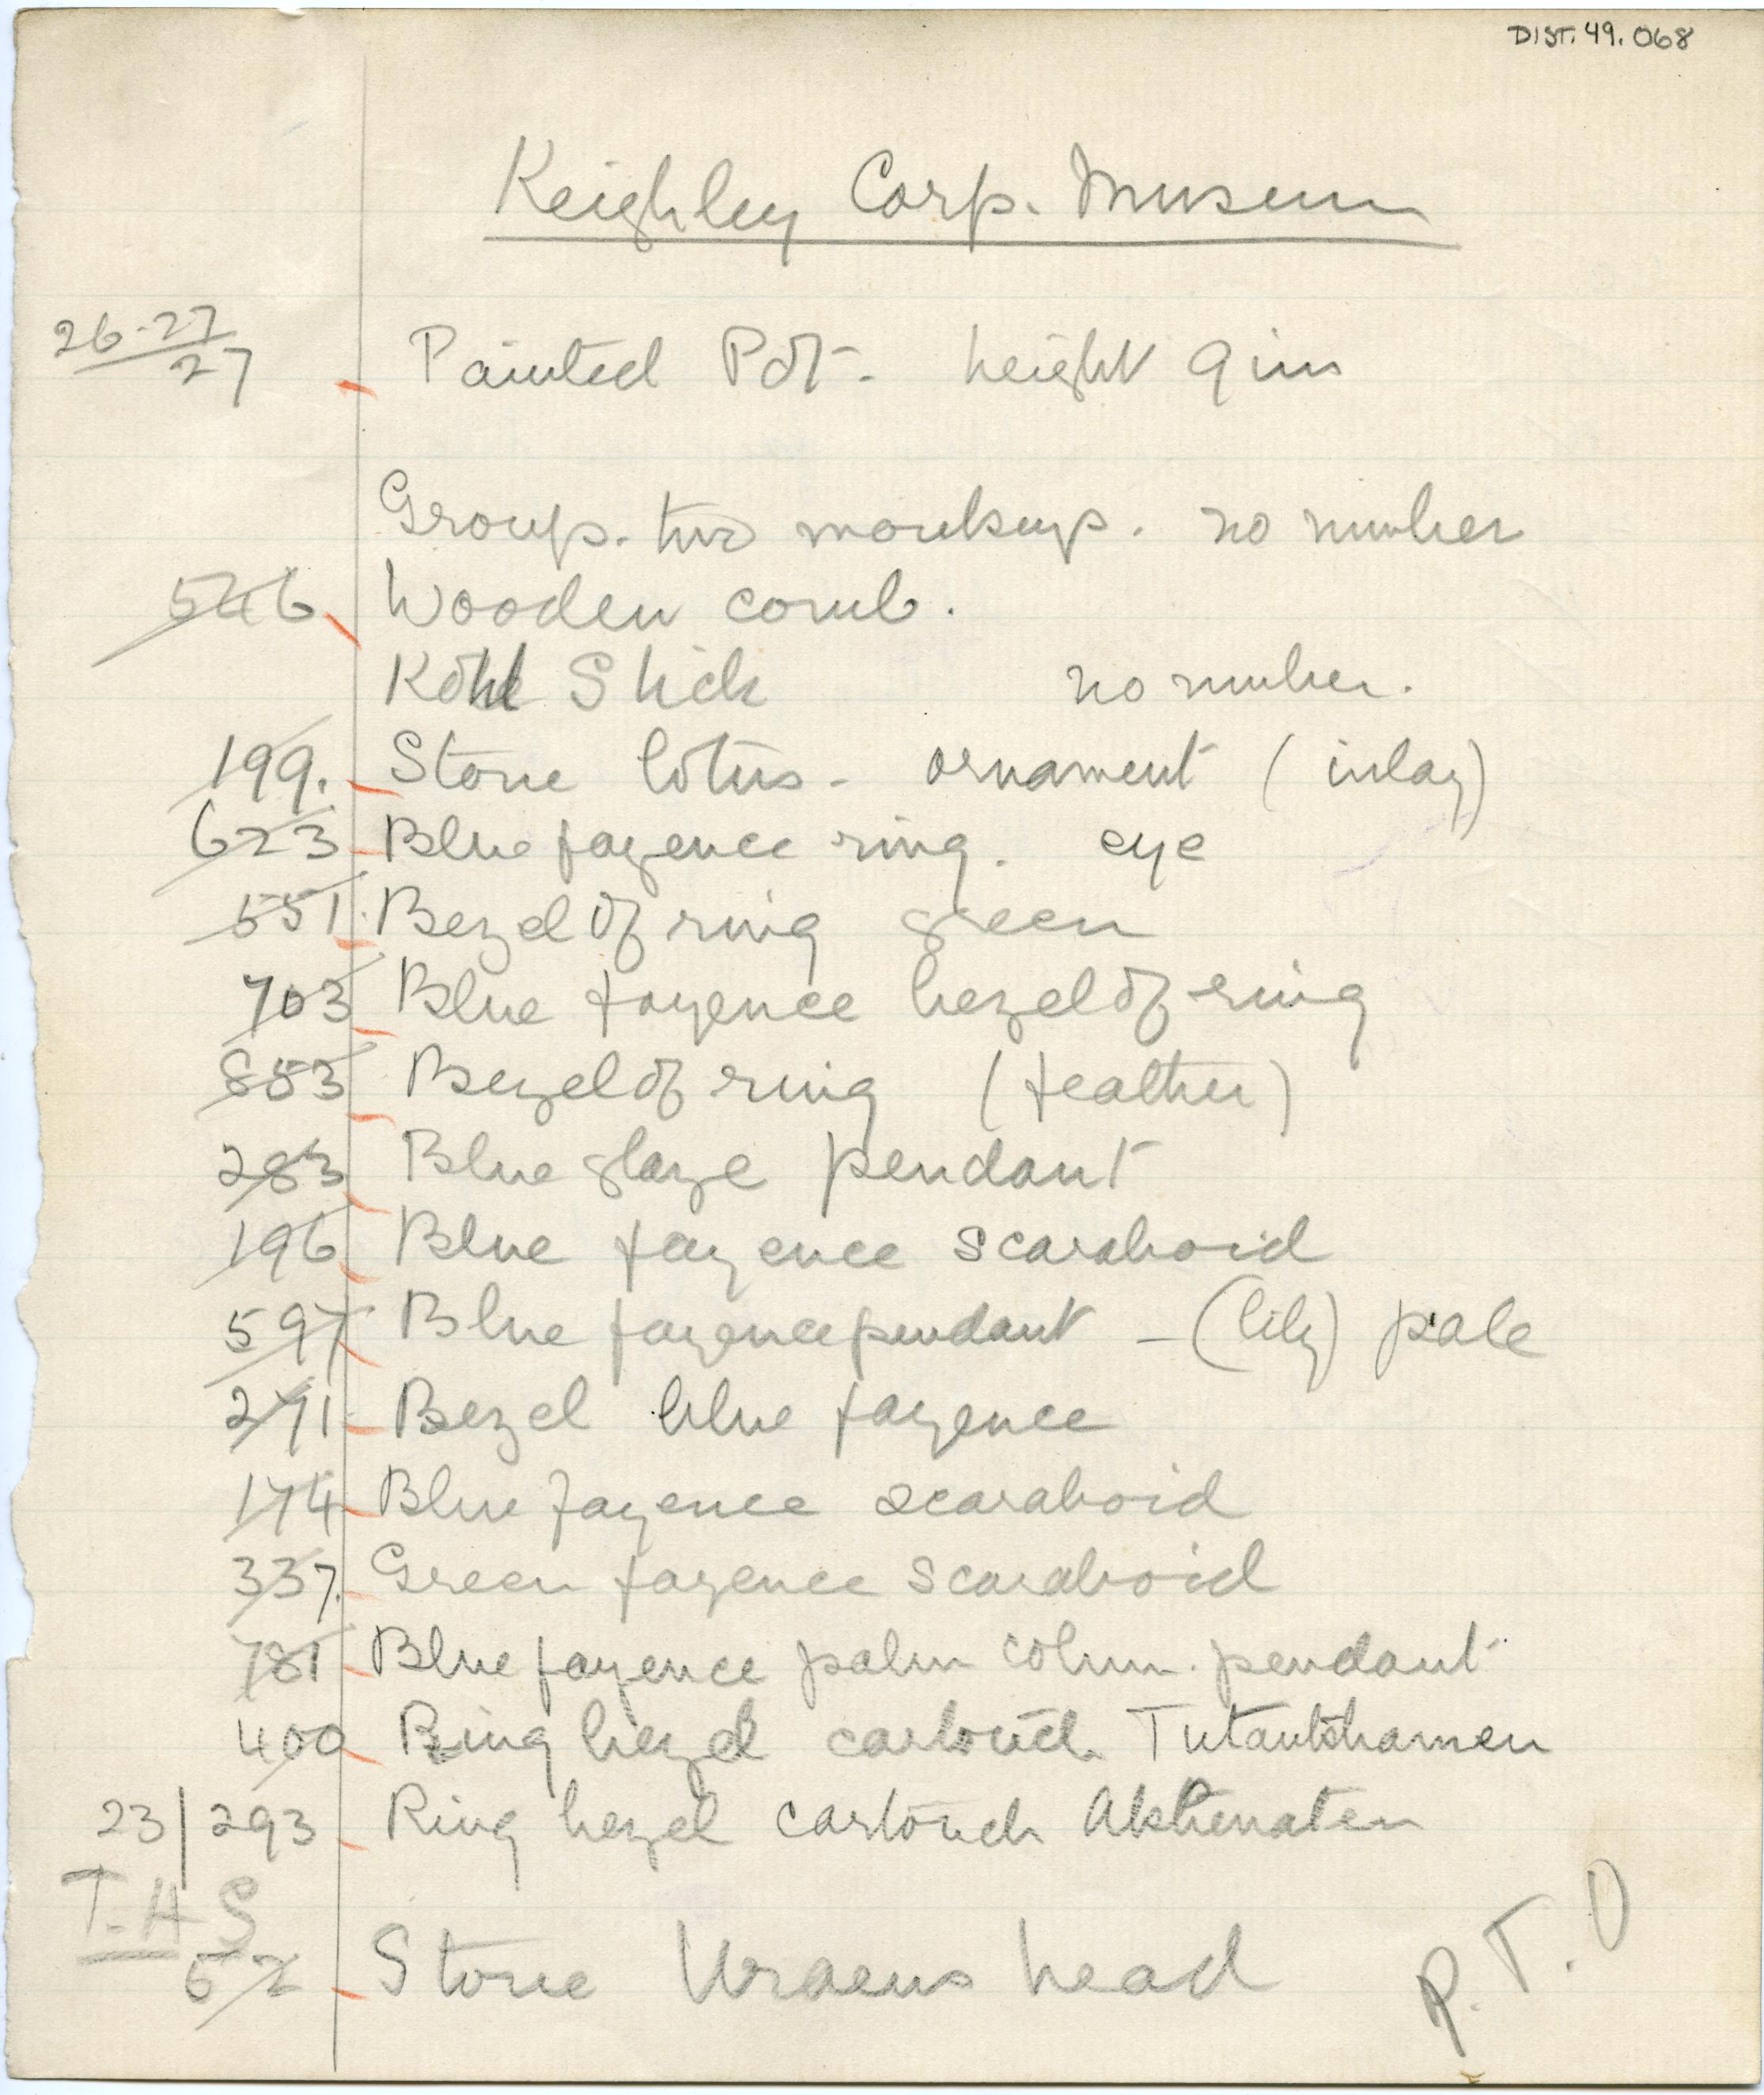 DIST. 49. 068
Keighley Corp. Museum
26-27
27 Painted Pot. height 9 ins
Group. two monkeys. no number
546 Wooden comb.
Kohl Stick no number.
199. Stone lotus - ornament (inlay)
623 Blue fayence ring. eye
551. Bezel of ring green
703 Blue fayence bezel of ring
853 Bezel of ring (feather)
283 Blue glaze pendant
196 Blue fayence scaraboid
597 Blue fayence pendant - (lily) pale
271 Bezel blue fayence
174 Blue fayence scaraboid
337. Green fayence scaraboid
781 Blue fayence palm colum. pendant
400 Ring bezel cartouch Tutankhamen
23/293 Ring bezel cartouch Akhenaten
T. H S
52 Stone Uraeus head
P. T. O